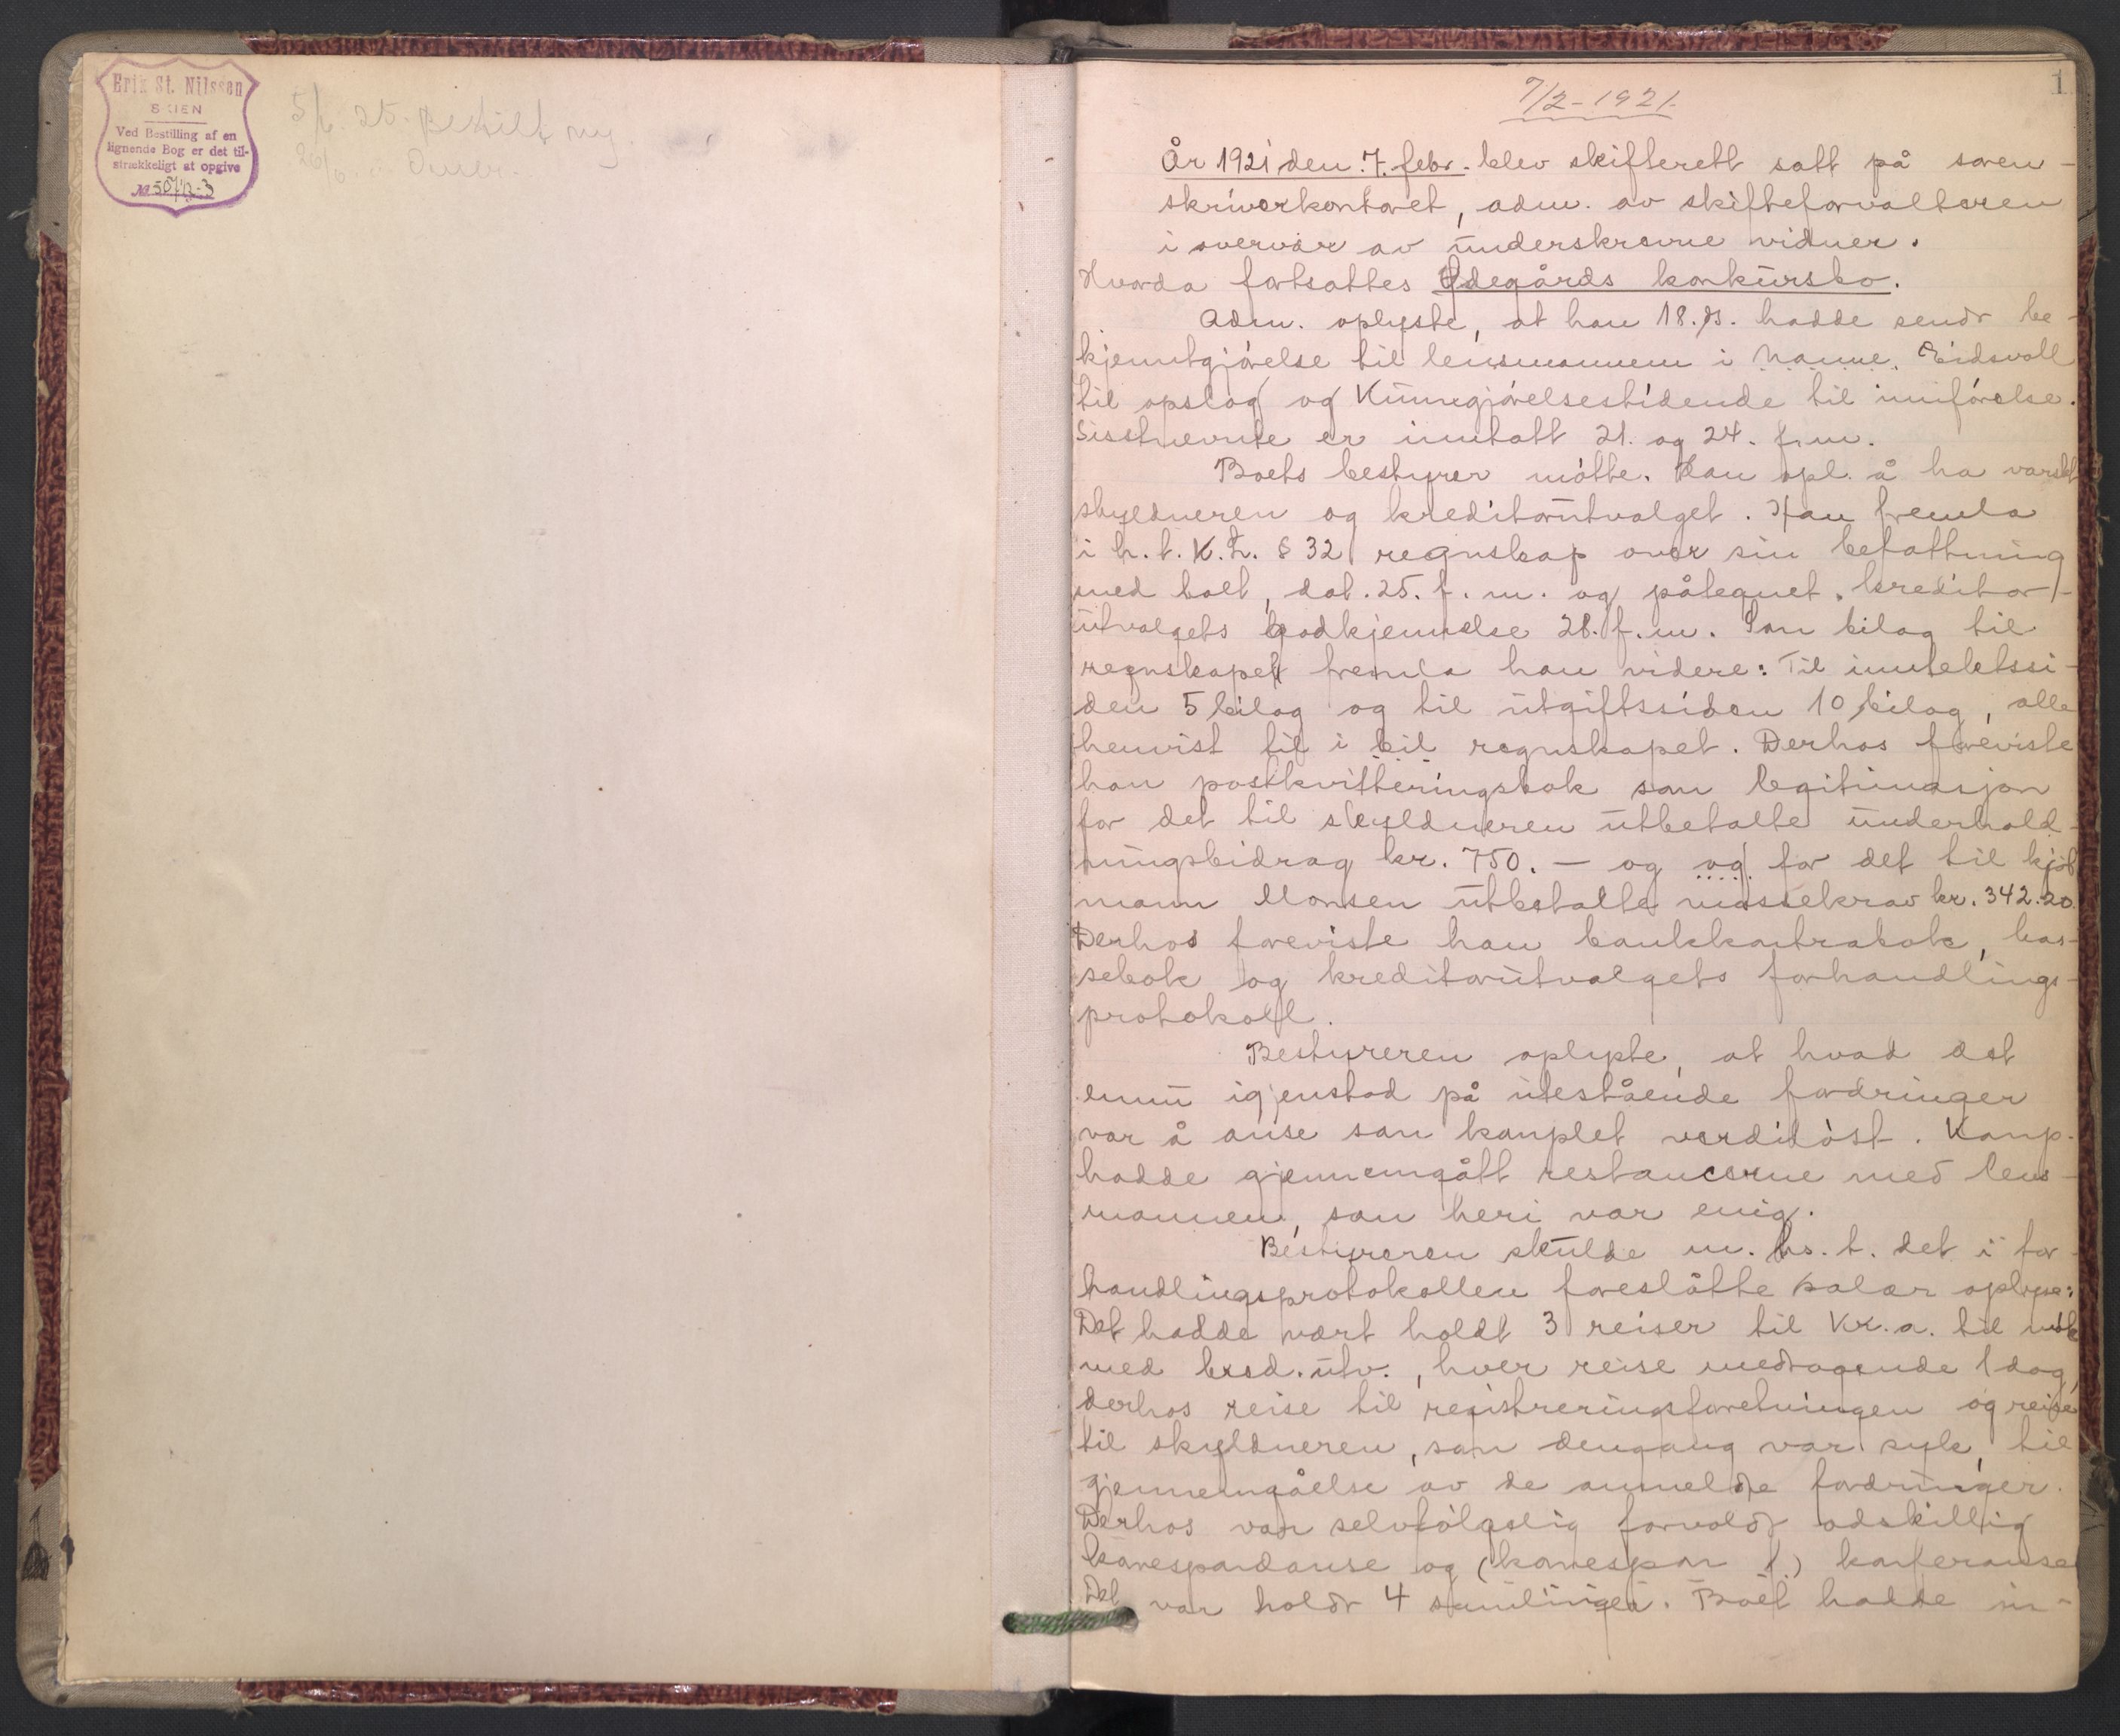 Erik St. Nilssen
SKIEN
Ved Bestilling af en
lignende Bog er det til-
strækkeligt at opgive
№
5/6. 25. Bestilt ny.
1
7/2-1921.
År 1921 den 7. febr. blev skifterett satt på soren-
skriverkontoret, adm. av skifteforvalteren
i overvær av underskrevne vidner.
Hvorda fortsattes Ødegårds konkursbo.
Adm. oplyste, at han 18. hadde sendt be-
kjenntgjørelse til lensmannen i Nanne. Eidsvoll
til opslag og Kunngjørelsestidende til innførelse.
Sisstnevnte er inntatt 21. og 24. f.m.
Boets bestyrer møtte. Han opl. å ha varslet
skyldneren og kreditorutvalget. Han fremla
i h.t. K.L. § 32 regnskap over sin befattning
med boet, dat. 25. f.m. og påtegnet kreditor-
utvalgets godkjennelse 28. f.m. Som bilag til
regnskapet fremla han videre: Til inntektssi-
den 5 bilag og til utgiftssiden 10 bilag, alle
henvist til i bil regnskapet. Derhos foreviste
han postkvitteringsbok som legitimasjon
for det til skyldneren utbetalte underhold-
ningsbidrag kr. 750.— og og for det til kjøb
mann Monsen utbetalte massekrav kr. 342.20.
Derhos foreviste han bankkontrabok, kas-
sebok og kreditorutvalgets forhandlings-
protokoll.
Bestyreren oplyste, at hvad det
ennu igjenstod på utestående fordringer
var å anse som komplet verdiløst. Komp.
hadde gjennemgått restancerne med lens-
mannen, som heri var enig.
Bestyreren skulde m. hs. t. det i for-
handlingsprotokollen foreslåtte salær oplyse:
Det hadde vært holdt 3 reiser til Kr.a. til møte
med kred. utv., hver reise medtagende 1 dag,
derhos reise til registreringsforetningen og reise
til skyldneren, som dengang var syk, til
gjennemgåelse av de anmeldte fordringer.
Derhos var selvfølgelig forvoldt adskillig
korrespondanse og (korrespon f.) konferanse
Det var holdt 4 samlinger. Boet hadde in-